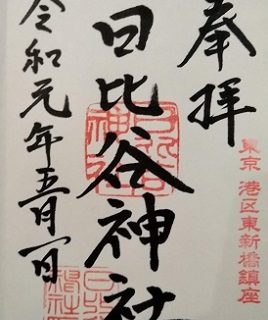 奉拝
東京 港区東新橋鎮座
日比谷神社
令和元年五月一日